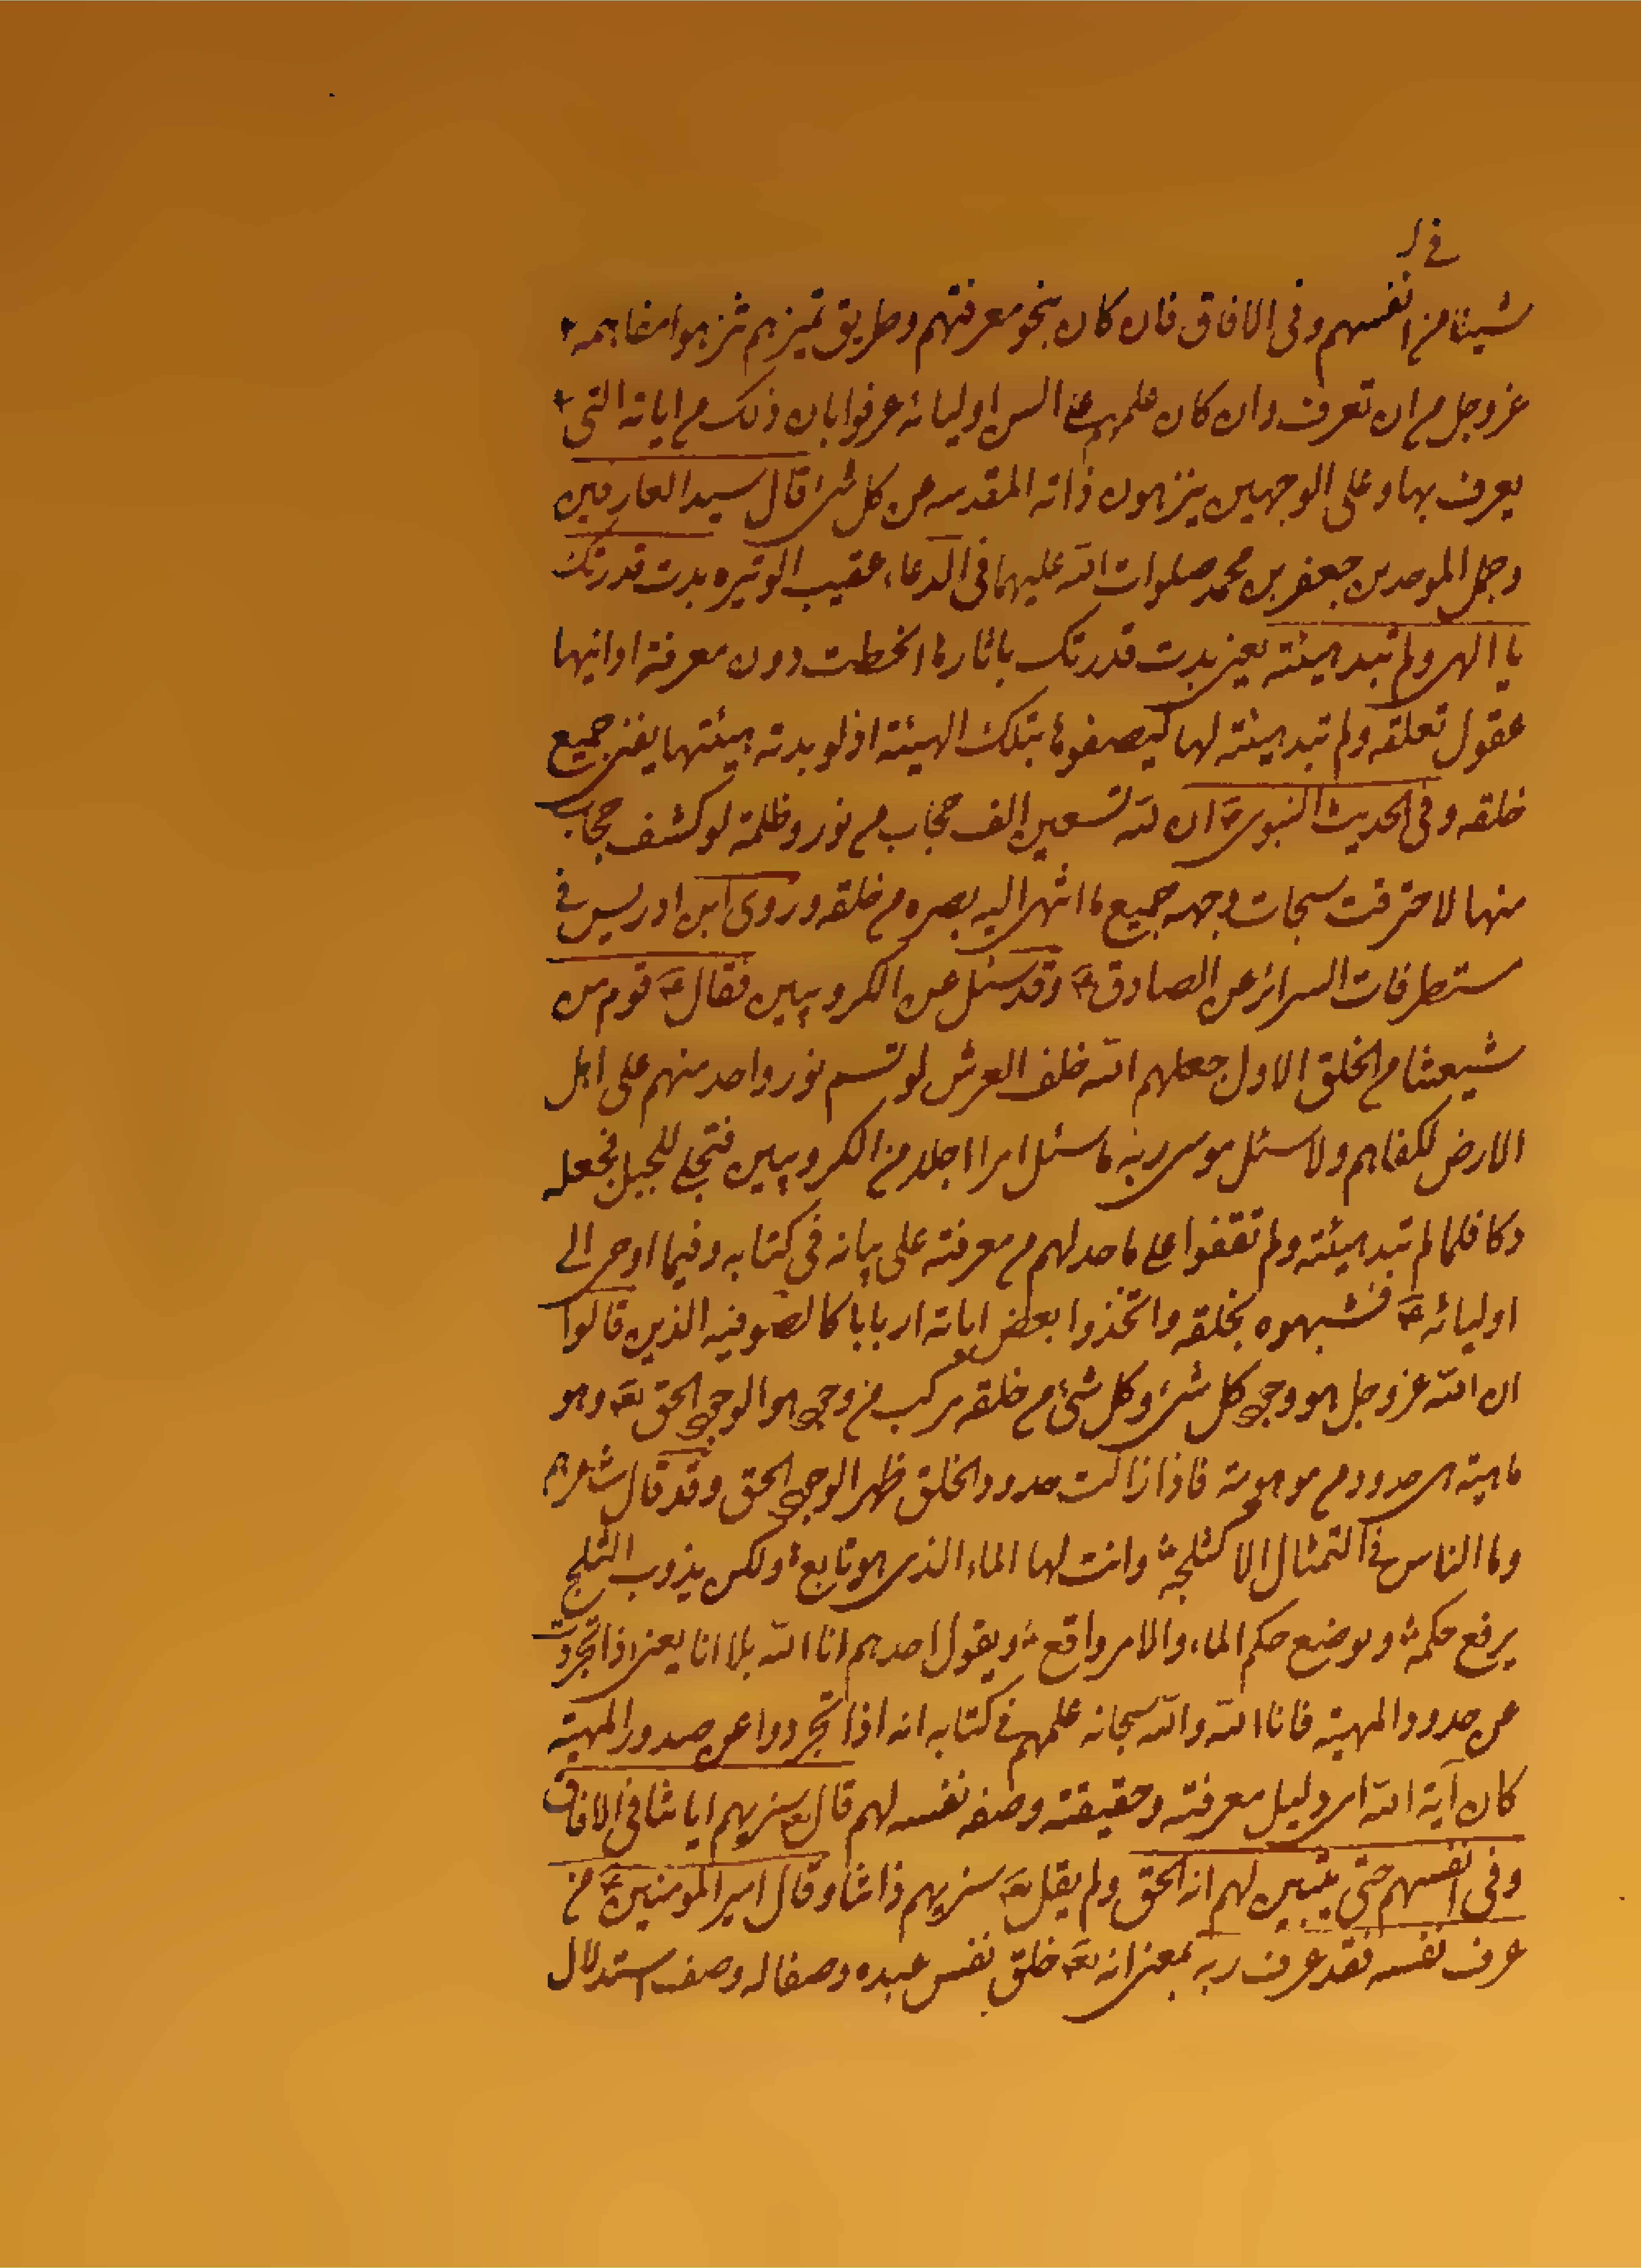 في ا
شيئا من انفسهم وفى الافاق فان كان بنحو معرفتهم وطريق تميزهم نزهوا مفاهمه
عز وجل من ان تعرف وان كان علمهم على السن اوليائه عرفوا بان ذلك من اياته التى
يعرف بها وعلى الوجهين ينزهون ذاته المقدسه عن كل شئ قال سيد العارفين
وجل الموحدين جعفر بن محمد صلوات الله عليهما فى الدعاء عقيب الوتيره بدت قدرتك
يا الهى ولم تبد هيئته يعنى بدت قدرتك باثارها انحطت دون معرفة ادانيها
عقول تعلقه ولم تبد هيئته لها كى يصفوها بتلك الهيئة اذ لو بدته هيئتها يفنى جميع
خلقه وفى الحديث النبوى ان لله تسعين الف حجاب من نور وظلمة لو كشف حجاب
منها لاحترقت سبحات وجهه جميع ما انتهى اليه بصره من خلقه وروى ابن ادريس فى
مستطرفات السرائر عن الصادق ع وقد سئل عن الكروبيين فقال ع قوم من
شيعتنا من الخلق الاول جعلهم الله خلف العرش لو قسم نور واحد منهم على اهل
الارض لكفاهم ولا سئل موسى ربه ما سئل امرا اجلا من الكروبيين فتجلى للجبل فجعله
دكا فلما لم تبد هيئته ولم تقفوا على ما حد لهم من معرفته على بيانه فى كتابه وفيما اوحى الى
اوليائه ع فشبهوه بخلقه واتخذوا بعض اياته اربابا كالصوفيه الذين قالوا
ان الله عز وجل هو وجود كل شئ وكل شئ من خلقه مركب من وجود هو الوجود الحق تعه وهو
ماهيته هى حدود موهومة فاذا زالت حدود الخلق ظهر الوجود الحق وقد قال شاعرهم
وما الناس فى التمثال الا كثلجة وانت لها الماء الذى هو نابع ولكن يذوب الثلج
يرفع حكمه ويوضع حكم الماء والامر واقع ويقول احدهم انا الله بلا انا يعنى اذا تجردت
عن حدود المهية فانا الله والله سبحانه علمهم فى كتابه انه اذا تجردوا عن حدود المهية
كان آية الله اى دليل معرفته وحقيقته وصفه نفسه لهم قال تع سنريهم اياتنا فى الافاق
وفى انفسهم حتى يتبين لهم انه الحق ولم يقل تعه سنريهم ذاتنا وقال امير المومنين ع من
عرف نفسه فقد عرف ربه بمعنى انه تعه خلق نفس عبده وصفا له وصف استدلال